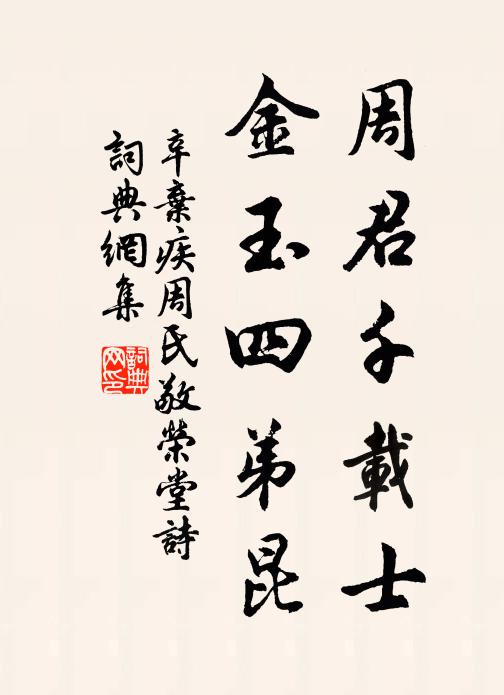 周君千載士
金玉四弟昆
辛棄疾周氏敬榮堂詩
詞典網集
詞典網印